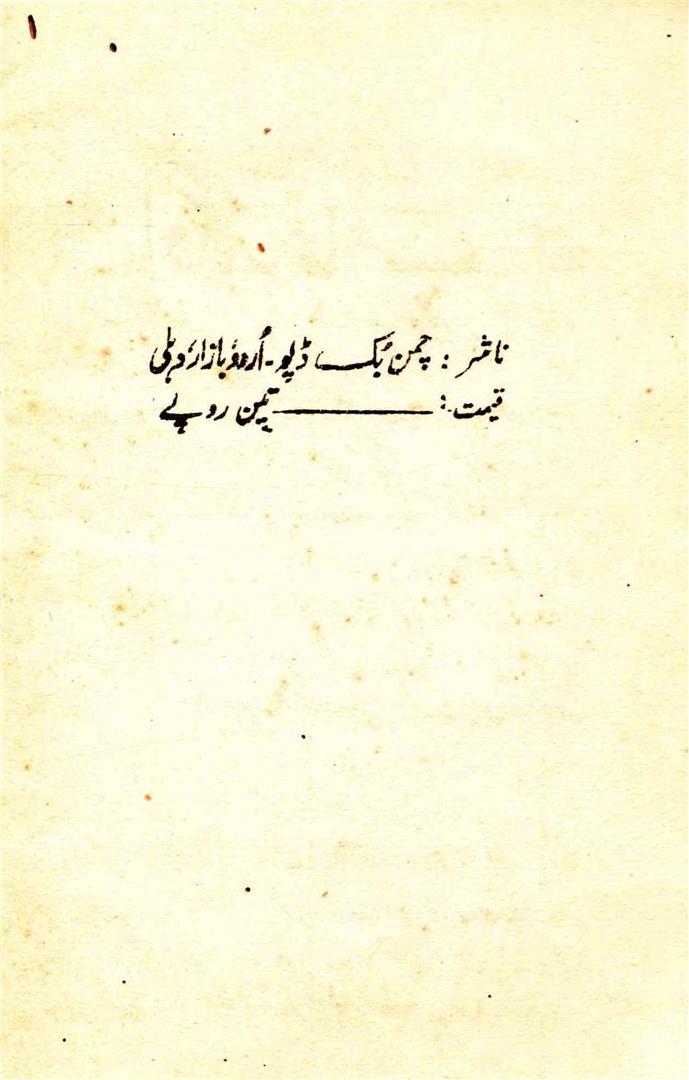 ناشر : چمن بک ڈپو۔ اُردو بازار، دہلی
قیمت :ـــــــــــ تین روپے